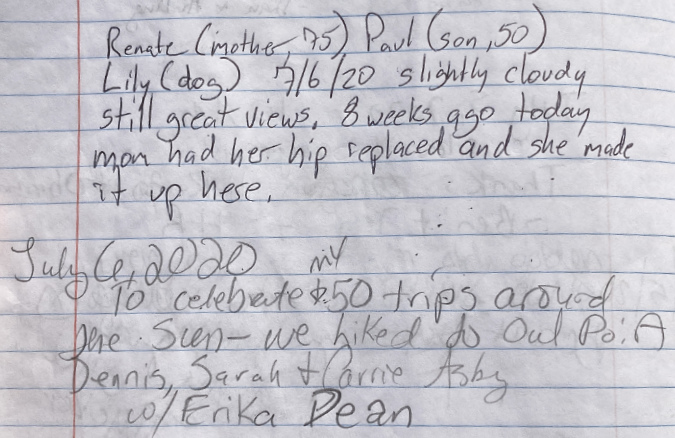 Renate (mother, 75) Paul (son, 50)
Lily (dog) 7/6/20 slightly cloudy
still great views. 8 weeks ago today
mom had her hip replaced and she made
it up here.
July 6, 2020 my
To celebrate 50 trips around
the Sun - we hiked to Owl Point
Dennis, Sarah + Carrie Asby
w/ Erika Dean